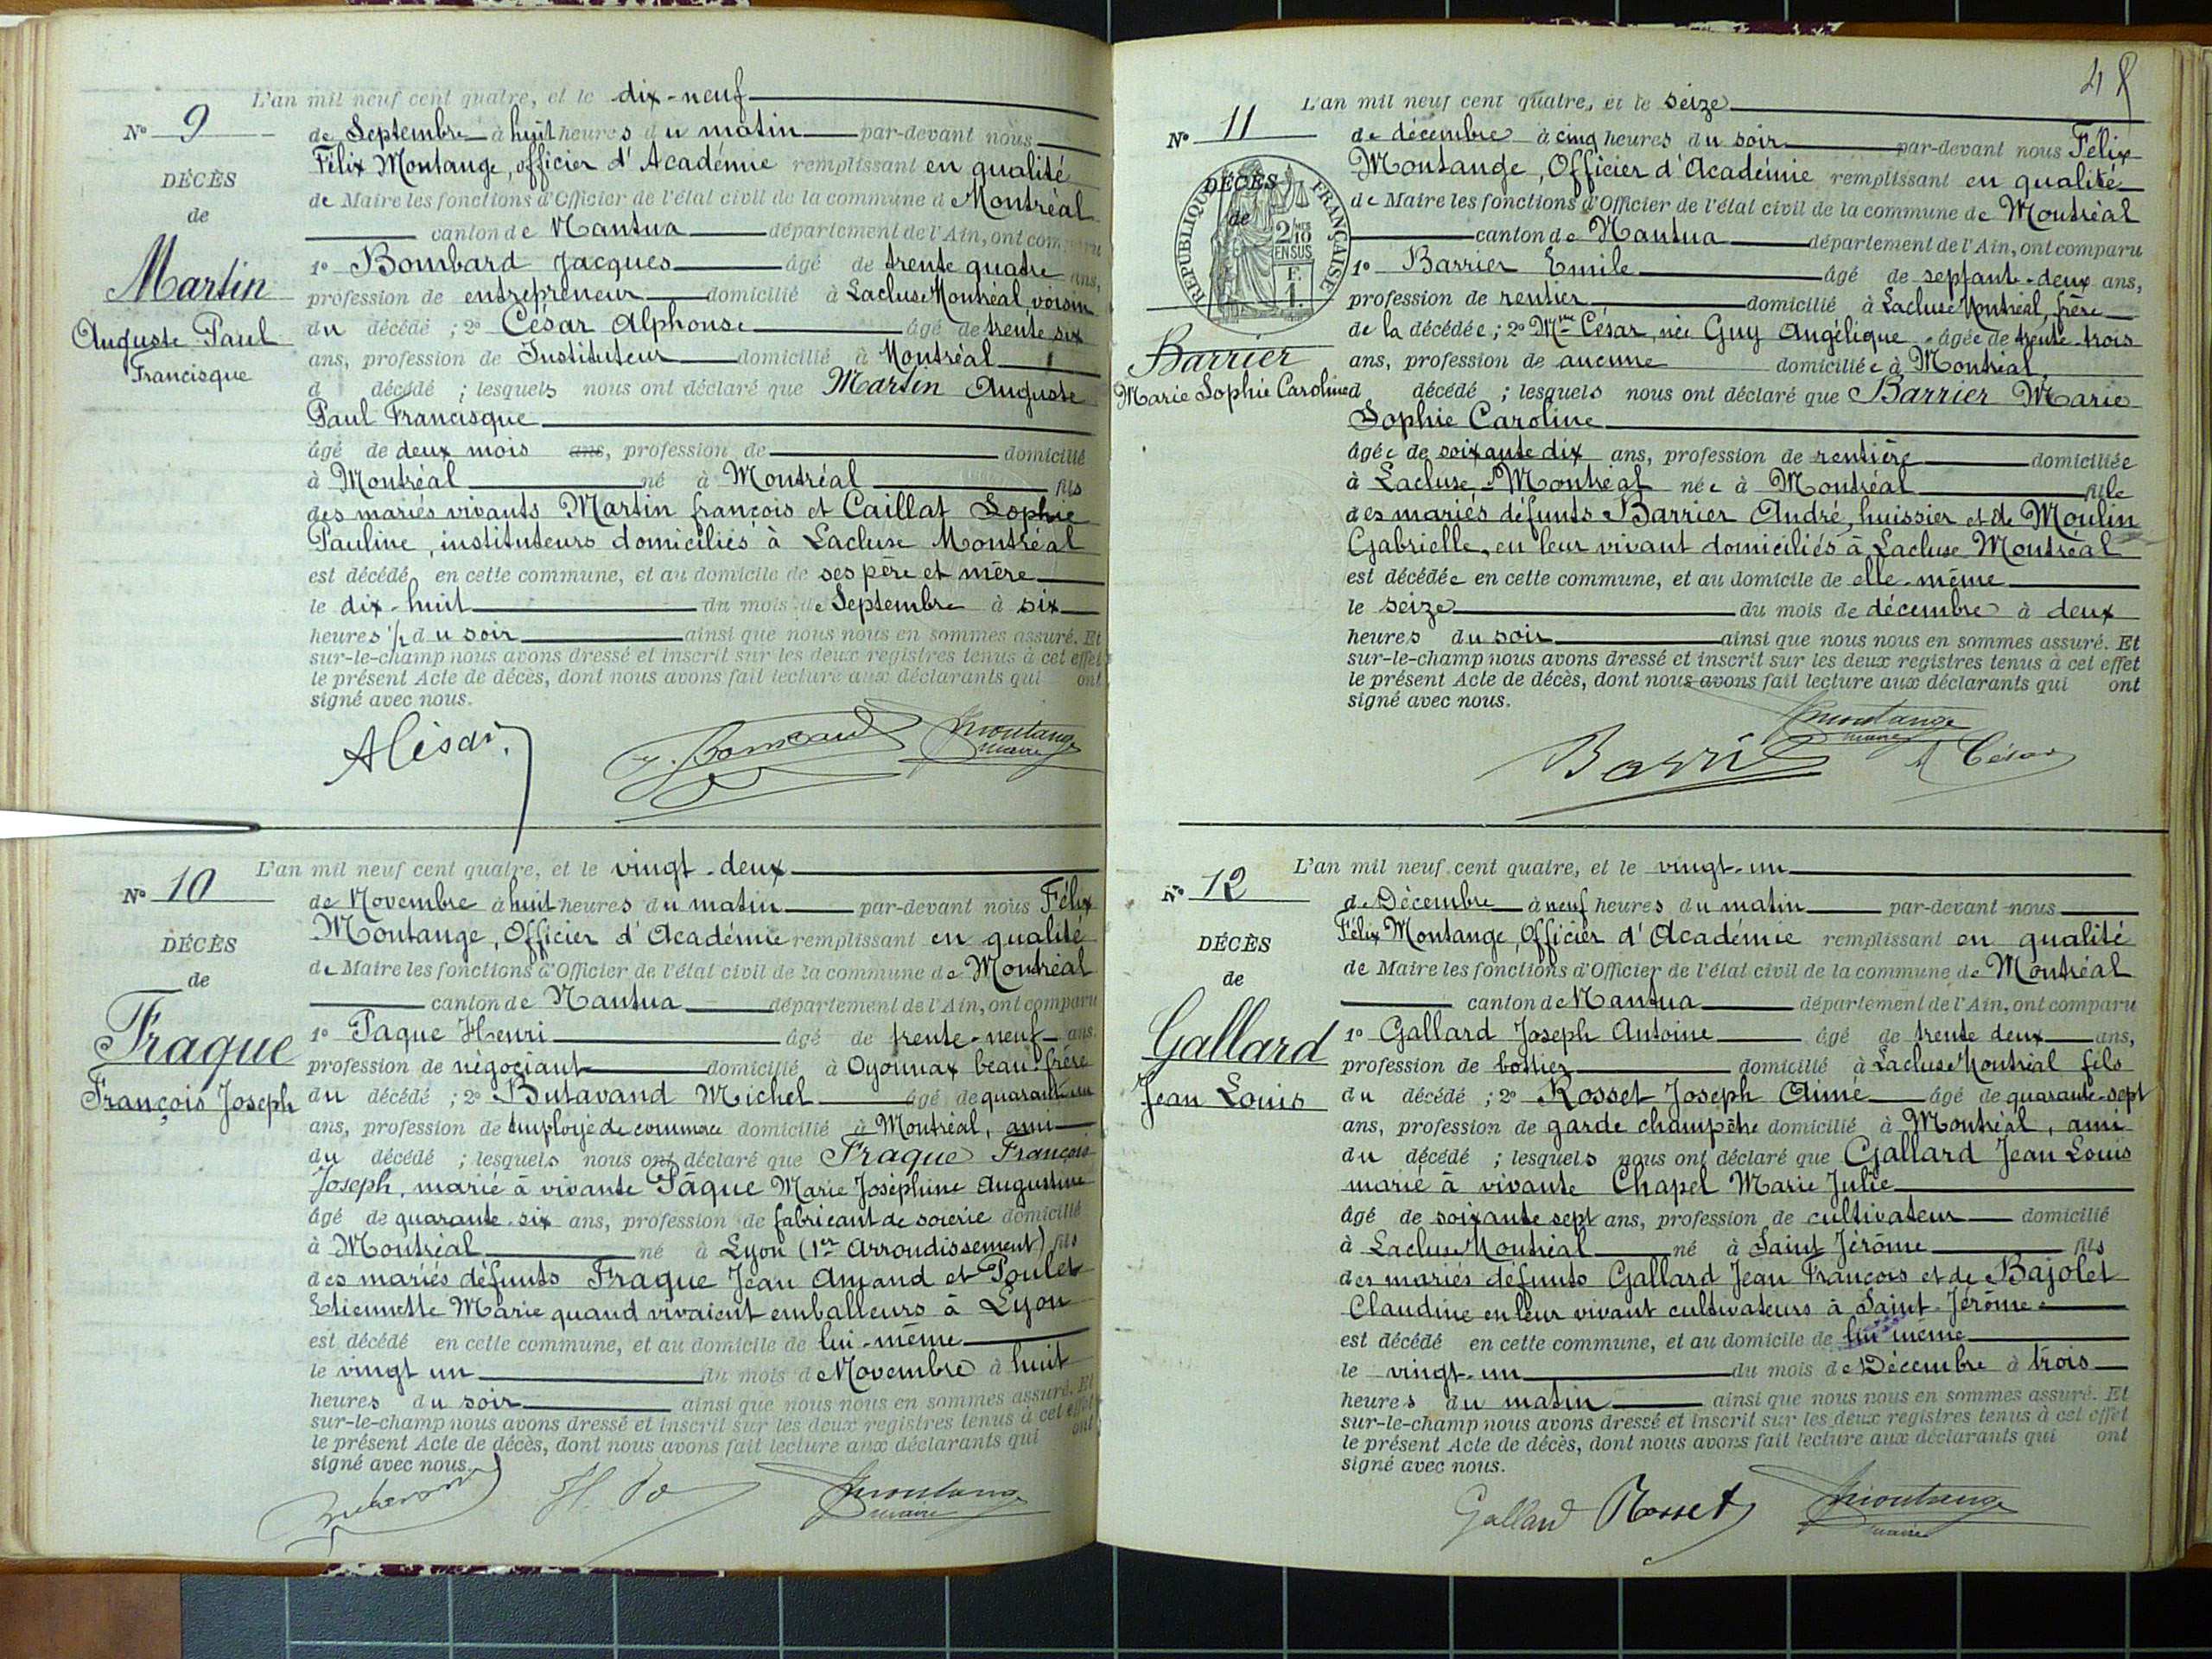 L'an mil neuf cent quatre, et le dix-neuf
N° 9
de Septembre à huit heures du matin par-devant nous
Félix Montange, officier d'Académie remplissant en qualité
DÉCÈS
de Maire les fonctions d'Officier de l'état civil de la commune de Montréal
de
canton de Nantua département de l'Ain, ont comparu
Martin
1° Bombard Jacques âgé de trente quatre ans,
profession de entrepreneur domicilié à Lacluse Montréal, voisin
Auguste Paul
du décédé ; 2° César Alphonse âgé de trente six
Francisque
ans, profession de Instituteur domicilié à Montréal
d décédé ; lesquels nous ont déclaré que Martin Auguste
Paul Francisque
âgé de deux mois ans, profession de domicilié
à Montréal né à Montréal fils
des mariés vivants Martin françois et Caillat Sophie
Pauline, instituteurs domiciliés à Lacluse Montréal
est décédé en cette commune, et au domicile de ses père et mère
le dix-huit du mois de Septembre à six
heures ½ du soir ainsi que nous nous en sommes assuré. Et
sur-le-champ nous avons dressé et inscrit sur les deux registres tenus à cet effet
le présent Acte de décès, dont nous avons fait lecture aux déclarants qui ont
signé avec nous.
A César J. Bombard Montange
maire
L'an mil neuf cent quatre, et le vingt-deux
N° 10
de Novembre à huit heures du matin par-devant nous Félix
Montange, Officier d'Académie remplissant en qualité
DÉCÈS
de Maire les fonctions d'Officier de l'état civil de la commune de Montréal
de
canton de Nantua département de l'Ain, ont comparu
Fraque
1° Paque Henri âgé de trente-neuf ans.
profession de négociant domicilié à Oyonnax beau-frère
François Joseph
du décédé ; 2° Butavand Michel âgé de quarante un
ans, profession de employé de commerce domicilié à Montréal, ami
du décédé ; lesquels nous ont déclaré que Fraque François
Joseph, marié à vivante Pâque Marie Joséphine Augustine
âgé de quarante-six ans, profession de fabricant de soierie domicilié
à Montréal né à Lyon (1er Arrondissement) fils
des mariés défunts Fraque Jean Amand et Poulet
Etiennette Marie quand vivaient emballeurs à Lyon
est décédé en cette commune, et au domicile de lui-même
le vingt un du mois de Novembre à huit
heures du soir ainsi que nous nous en sommes assuré. Et
sur-le-champ nous avons dressé et inscrit sur les deux registres tenus à cet effet
le présent Acte de décès, dont nous avons fait lecture aux déclarants qui ont
signé avec nous.
Montange
maire
48
L'an mil neuf cent quatre, et le seize
N° 11
de décembre à cinq heures du soir par-devant nous Félix
Montange, Officier d'Académie remplissant en qualité
DÉCÈS
de
RÉPUBLIQUE FRANÇAISE
2/10
EN SUS
1 F.
de Maire les fonctions d'Officier de l'état civil de la commune de Montréal
canton de Nantua département de l'Ain, ont comparu
1° Barrier Emile âgé de septante-deux ans,
profession de rentier domicilié à Lacluse Montréal, frère
Barrier
de la décédée ; 2° Mme César, née Guy Angélique âgée de trente-trois
ans, profession de aucune domiciliée à Montréal,
Marie Sophie Caroline
d décédé ; lesquels nous ont déclaré que Barrier Marie
Sophie Caroline
âgée de soixante dix ans, profession de rentière domiciliée
à Lacluse-Montréal née à Montréal fille
des mariés défunts Barrier André, huissier et de Moulin
Gabrielle, en leur vivant domiciliés à Lacluse Montréal
est décédée en cette commune, et au domicile de elle-même
le seize du mois de décembre à deux
heures du soir ainsi que nous nous en sommes assuré. Et
sur-le-champ nous avons dressé et inscrit sur les deux registres tenus à cet effet
le présent Acte de décès, dont nous avons fait lecture aux déclarants qui ont
signé avec nous.
Montange
maire
Barrier A César
L'an mil neuf cent quatre, et le vingt-un
N° 12
de Décembre à neuf heures du matin par-devant nous
Félix Montange, Officier d'Académie remplissant en qualité
DÉCÈS
de Maire les fonctions d'Officier de l'état civil de la commune de Montréal
de
canton de Nantua département de l'Ain, ont comparu
Gallard
1° Gallard Joseph Antoine âgé de trente deux ans,
profession de bottier domicilié à Lacluse Montréal fils
Jean Louis
du décédé ; 2° Rosset Joseph Aimé âgé de quarante-sept
ans, profession de garde champêtre domicilié à Montréal, ami
du décédé ; lesquels nous ont déclaré que Gallard Jean Louis
marié à vivante Chapel Marie Julie
âgé de soixante sept ans, profession de cultivateur domicilié
à Lacluse Montréal né à Saint Jérôme fils
des mariés défunts Gallard Jean François et de Bajolet
Claudine en leur vivant cultivateurs à Saint-Jérôme
est décédé en cette commune, et au domicile de lui même
le vingt-un du mois de Décembre à trois
heures du matin ainsi que nous nous en sommes assuré. Et
sur-le-champ nous avons dressé et inscrit sur les deux registres tenus à cet effet
le présent Acte de décès, dont nous avons fait lecture aux déclarants qui ont
signé avec nous.
Gallard Rosset Montange
maire